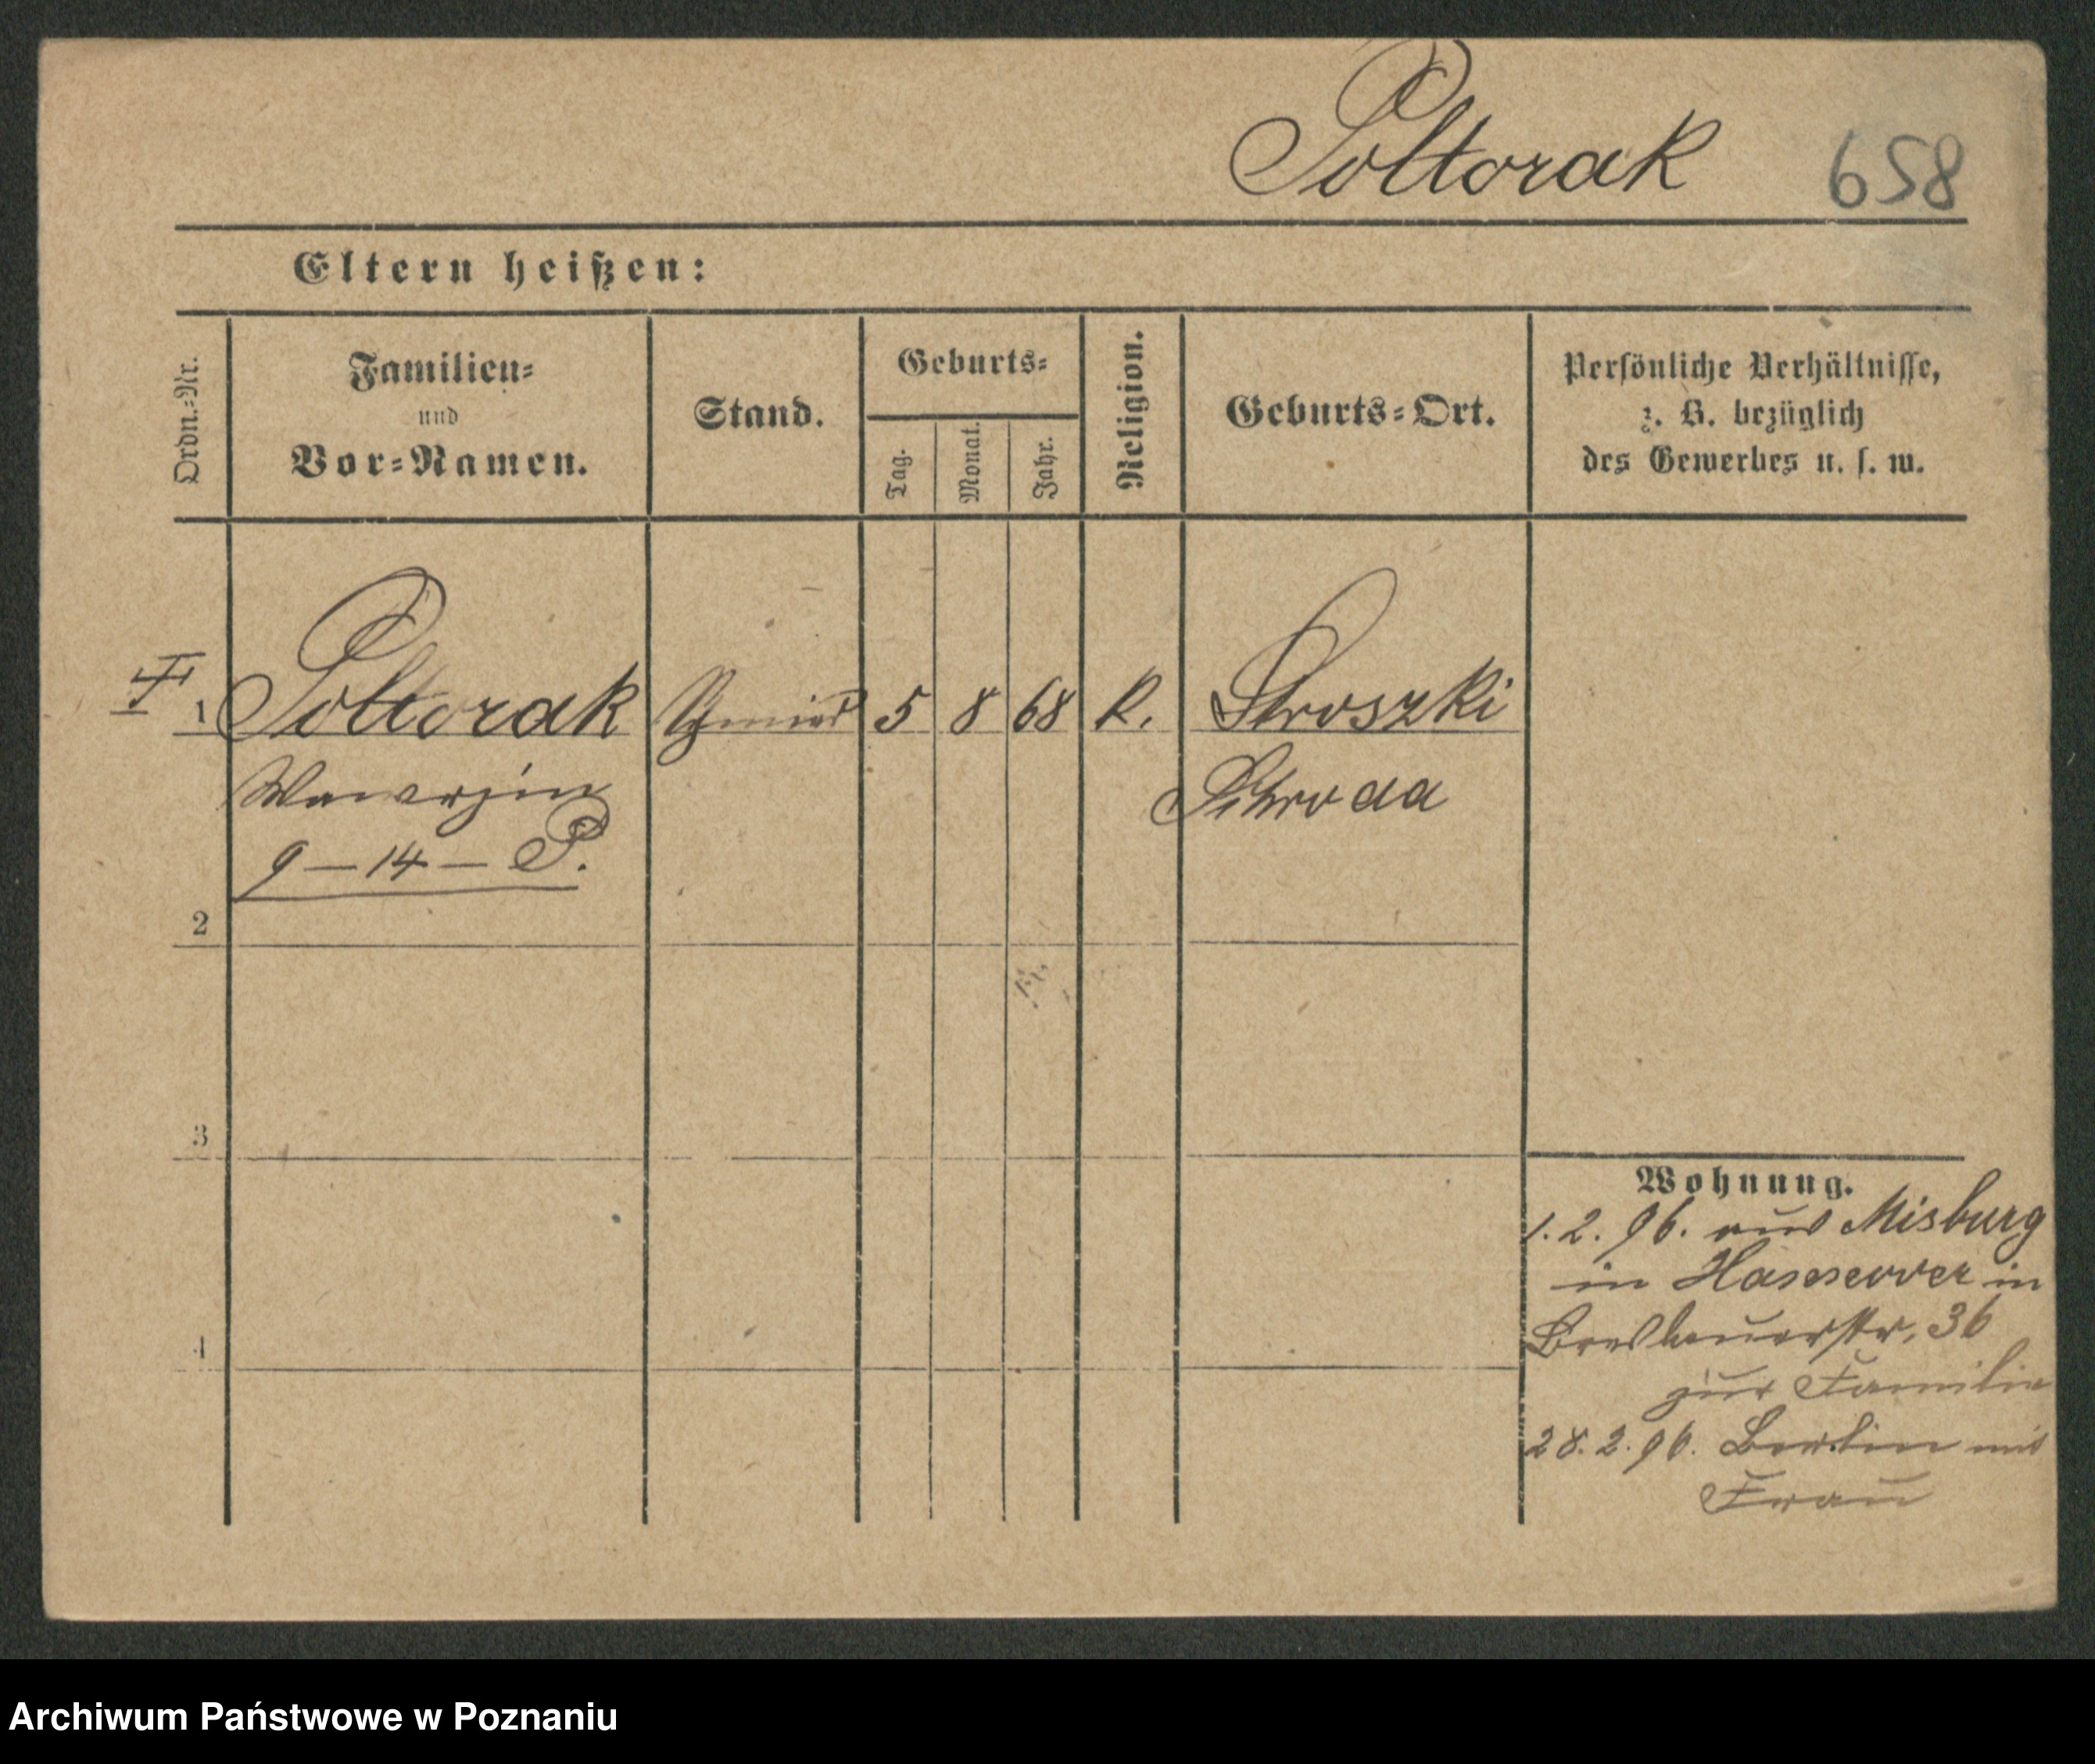 Poltorak 658
Eltern heißen:
Ordn.-Nr.
Familien-
und
Vor-Namen.
Stand.
Geburts-
Tag.
Monat.
Jahr.
Religion.
Geburts-Ort.
Persönliche Verhältnisse,
z. B. bezüglich
des Gewerbes u. s. w.
1 Poltorak Schmied 5 8 68 K. Stroszki
Wawrzin Schroda
9 – 14 – P.
2
3
4
Wohnung.
1.2.96. aus Misburg
in Hannover in
Breslauerstr. 36
zur Familie
28.2.96. Berlin mit
Frau
Archiwum Państwowe w Poznaniu